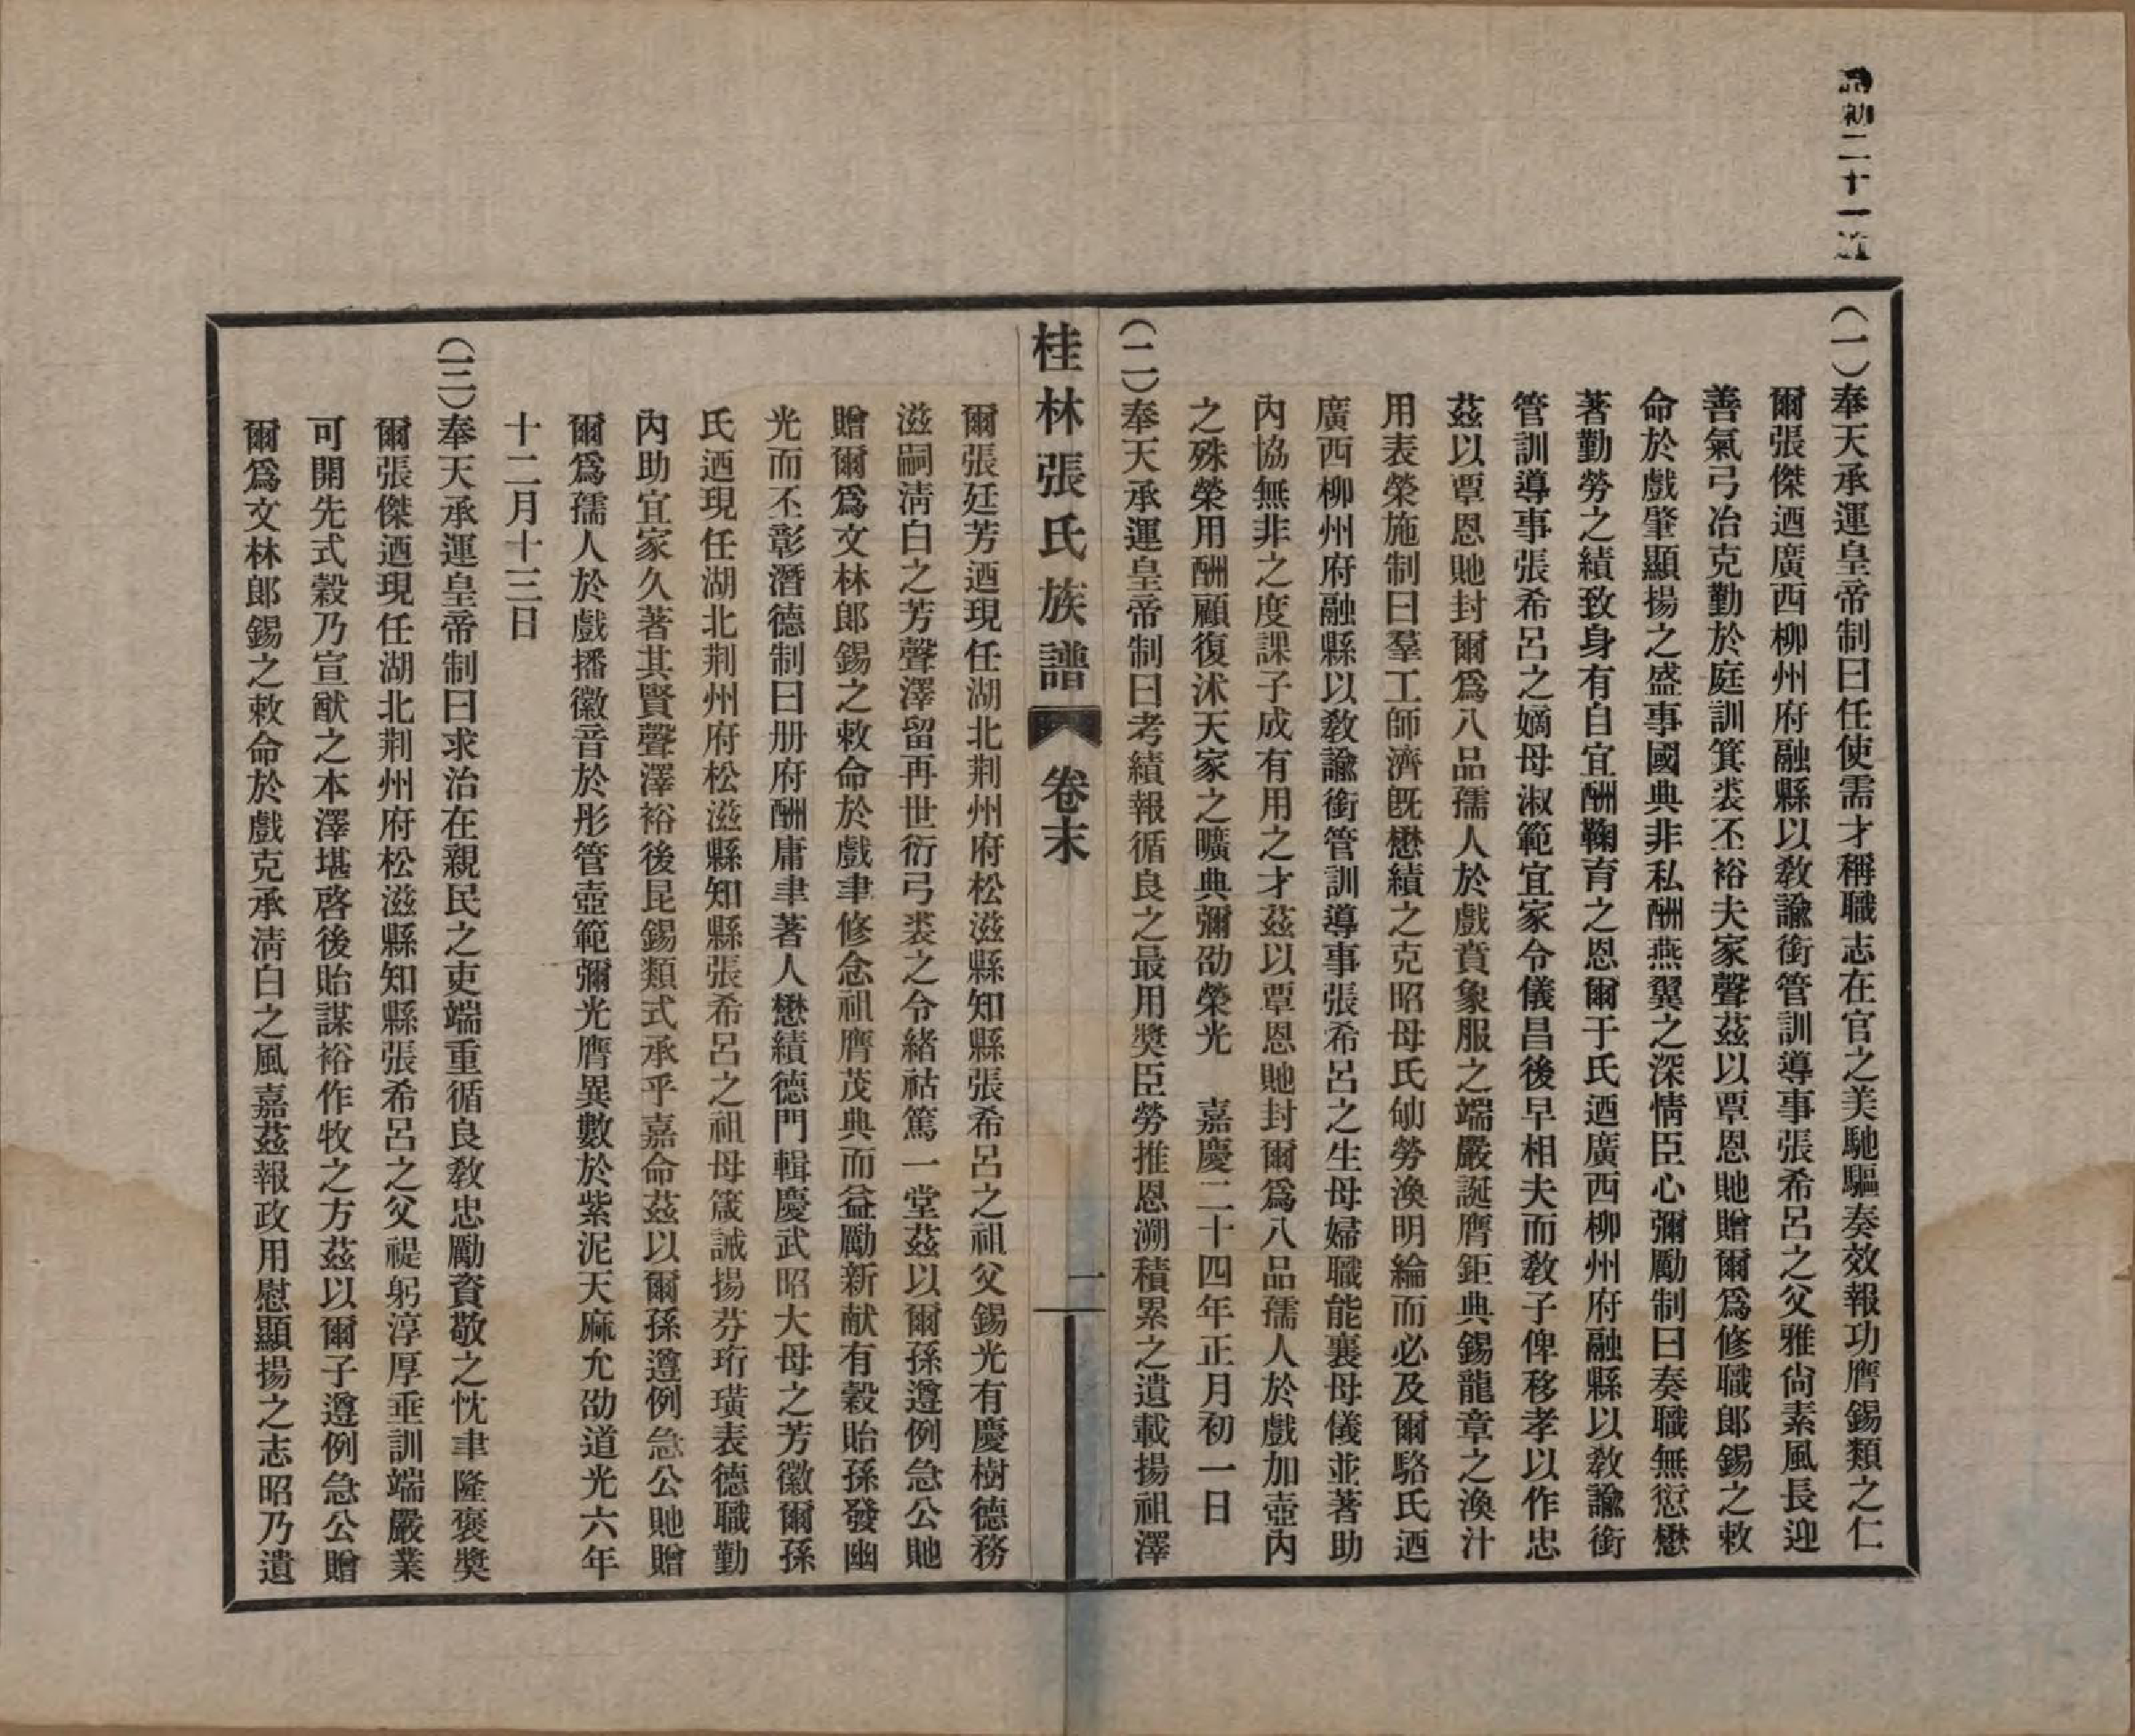 誥勅二十一道
（一）奉天承運皇帝制曰任使需才稱職志在官之美馳驅奏效報功膺錫類之仁
爾張傑迺廣西柳州府融縣以教諭銜管訓導事張希呂之父雅尙素風長迎
善氣弓冶克勤於庭訓箕裘丕裕夫家聲茲以覃恩貤贈爾爲修職郎錫之敕
命於戲肇顯揚之盛事國典非私酬燕翼之深情臣心彌勵制曰奏職無愆懋
著勤勞之績致身有自宜酬鞠育之恩爾于氏迺廣西柳州府融縣以教諭銜
管訓導事張希呂之嫡母淑範宜家令儀昌後早相夫而教子俾移孝以作忠
茲以覃恩貤封爾爲八品孺人於戲賁象服之端嚴誕膺鉅典錫龍章之渙汁
用表榮施制曰羣工師濟旣懋績之克昭母氏劬勞渙明綸而必及爾駱氏迺
廣西柳州府融縣以教諭銜管訓導事張希呂之生母婦職能襄母儀並著助
內協無非之度課子成有用之才茲以覃恩貤封爾爲八品孺人於戲加壺內
之殊榮用酬顧復沭天家之曠典彌劭榮光　嘉慶二十四年正月初一日
（二）奉天承運皇帝制曰考績報循良之最用獎臣勞推恩溯積累之遺載揚祖澤
桂林張氏族譜　卷末　一
爾張廷芳迺現任湖北荆州府松滋縣知縣張希呂之祖父錫光有慶樹德務
滋嗣淸白之芳聲澤留再世衍弓裘之令緒祜篤一堂茲以爾孫遵例急公貤
贈爾爲文林郎錫之敕命於戲聿修念祖膺茂典而益勵新猷有穀貽孫發幽
光而丕彰潛德制曰册府酬庸聿著人懋績德門輯慶武昭大母之芳徽爾孫
氏迺現任湖北荆州府松滋縣知縣張希呂之祖母箴誡揚芬珩璜表德職勤
內助宜家久著其賢聲澤裕後昆錫類式承乎嘉命茲以爾孫遵例急公貤贈
爾爲孺人於戲播徽音於彤管壺範彌光膺異數於紫泥天庥允劭道光六年
十二月十三日
（三）奉天承運皇帝制曰求治在親民之吏端重循良教忠勵資敬之忱聿隆褒獎
爾張傑迺現任湖北荆州府松滋縣知縣張希呂之父禔躬淳厚垂訓端嚴業
可開先式穀乃宣猷之本澤堪啓後貽謀裕作牧之方茲以爾子遵例急公贈
爾爲文林郎錫之敕命於戲克承淸白之風嘉茲報政用慰顯揚之志昭乃遺